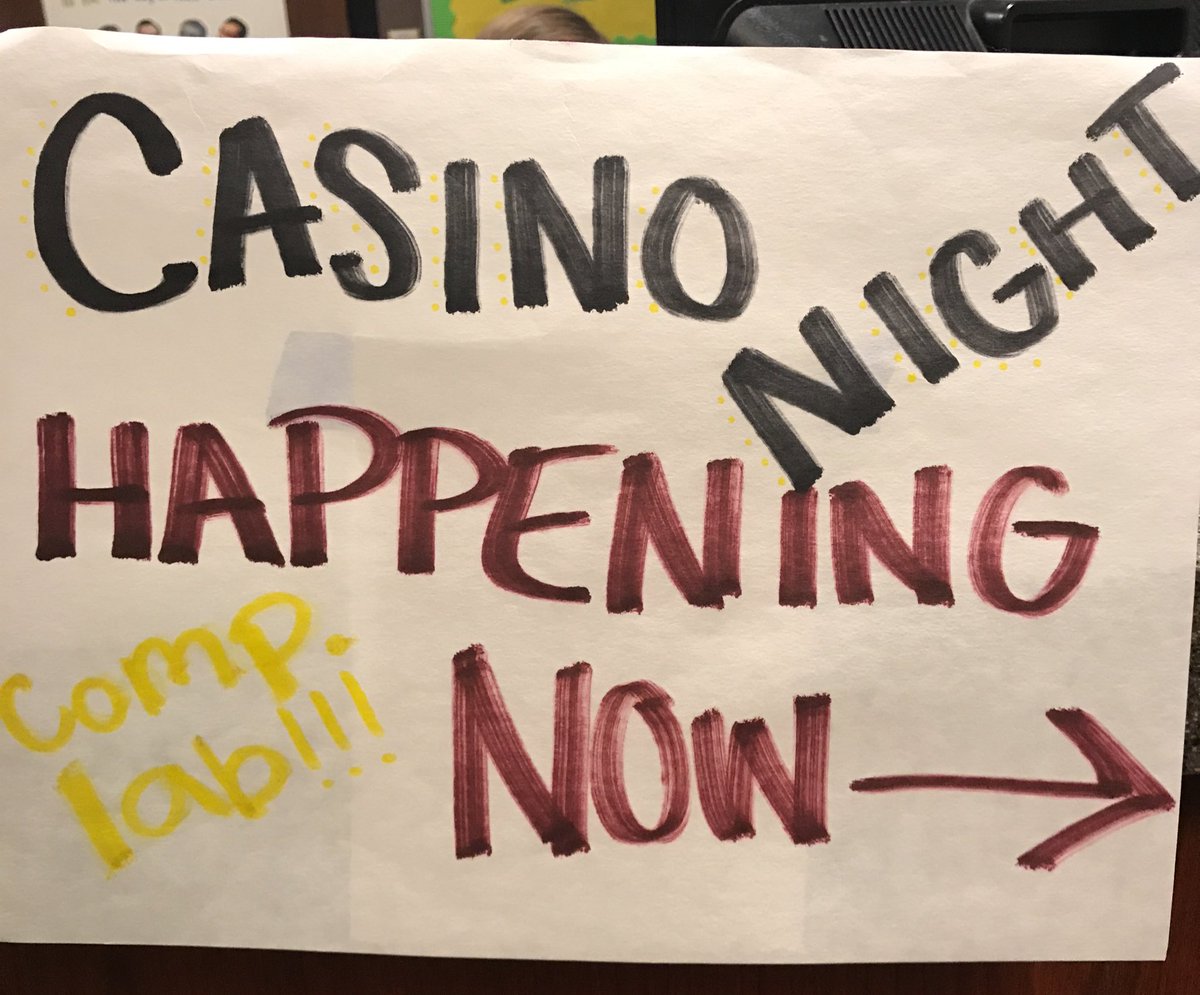 CASINO NIGHT
HAPPENING
NOW
comp.
lab!!!